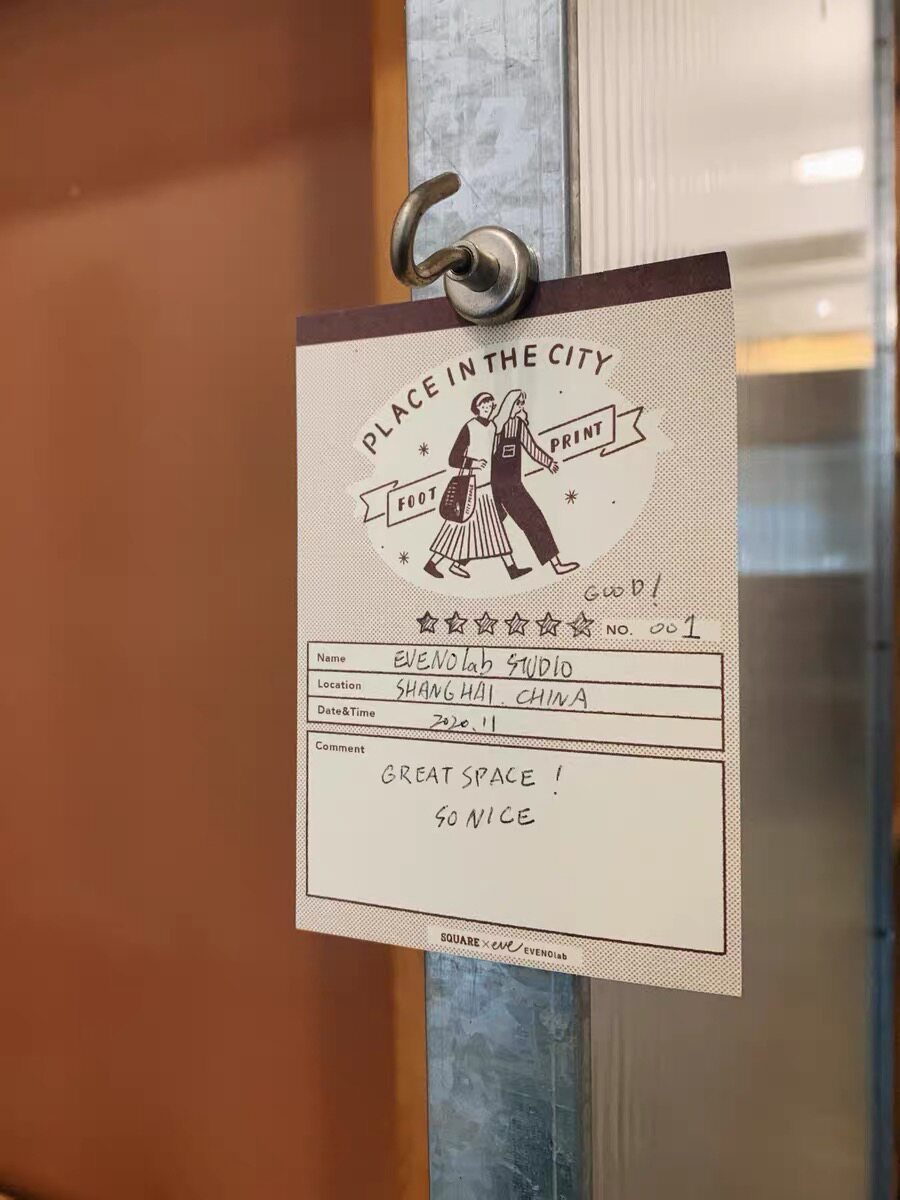 PLACE IN THE CITY
FOOT PRINT
GOOD!
NO. 001
Name EVENOlab STUDIO
Location SHANGHAI. CHINA
Date&Time 2020.11
Comment
GREAT SPACE !
SO NICE
SQUARE × eve EVENOlab